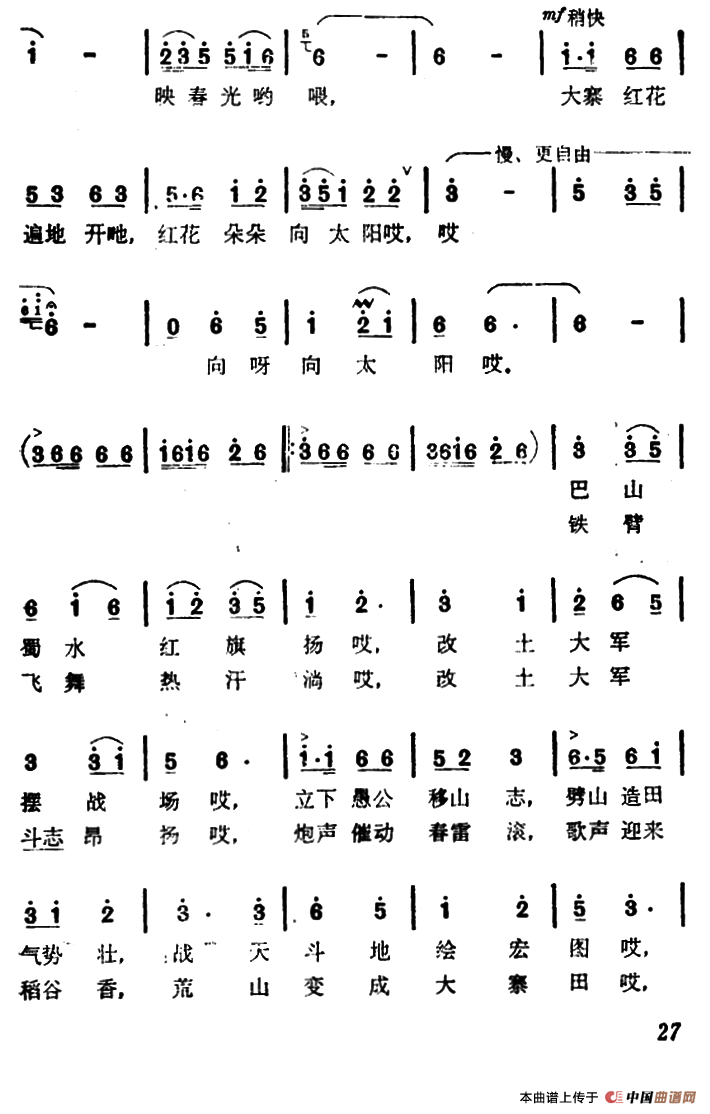 mf 稍快
i - | 2 3 5 5 i 6 | 6 - | 6 - | i · i 6 6 |
映春光哟 喂, 大寨 红花
慢、更自由
5 3 6 3 | 5 · 6 i 2 | 3 5 i 2 2 | 3 - | 5 3 5 |
遍地 开吔, 红花 朵朵 向 太 阳哎, 哎
6 - | 0 6 5 | i 2 i | 6 6 · | 6 - |
向 呀 向 太 阳 哎。
( 3 6 6 6 6 | i 6 i 6 2 6 | : 3 6 6 6 6 | 3 6 i 6 2 6 ) | 3 3 5 |
巴 山
铁 臂
6 i 6 | i 2 3 5 | i 2 · | 3 i | 2 6 5 |
蜀 水 红 旗 扬 哎, 改 土 大 军
飞 舞 热 汗 淌 哎, 改 土 大 军
3 3 i | 5 6 · | i · i 6 6 | 5 2 3 | 6 · 5 6 i |
摆 战 场 哎, 立下 愚公 移山 志, 劈山 造田
斗志 昂 扬 哎, 炮声 催动 春雷 滚, 歌声 迎来
3 i 2 | 3 · 3 | 6 5 | i 2 | 5 3 · |
气势 壮, 战 天 斗 地 绘 宏 图 哎,
稻谷 香, 荒 山 变 成 大 寨 田 哎,
27
本曲谱上传于 中国曲谱网